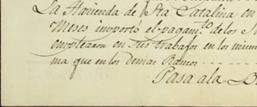 La Hacienda de Sta Catalina en
Meses importó el pagam.to de los
emplearon en sus trabajos en los mism
ma que en los demas Ramos
Pasa ala